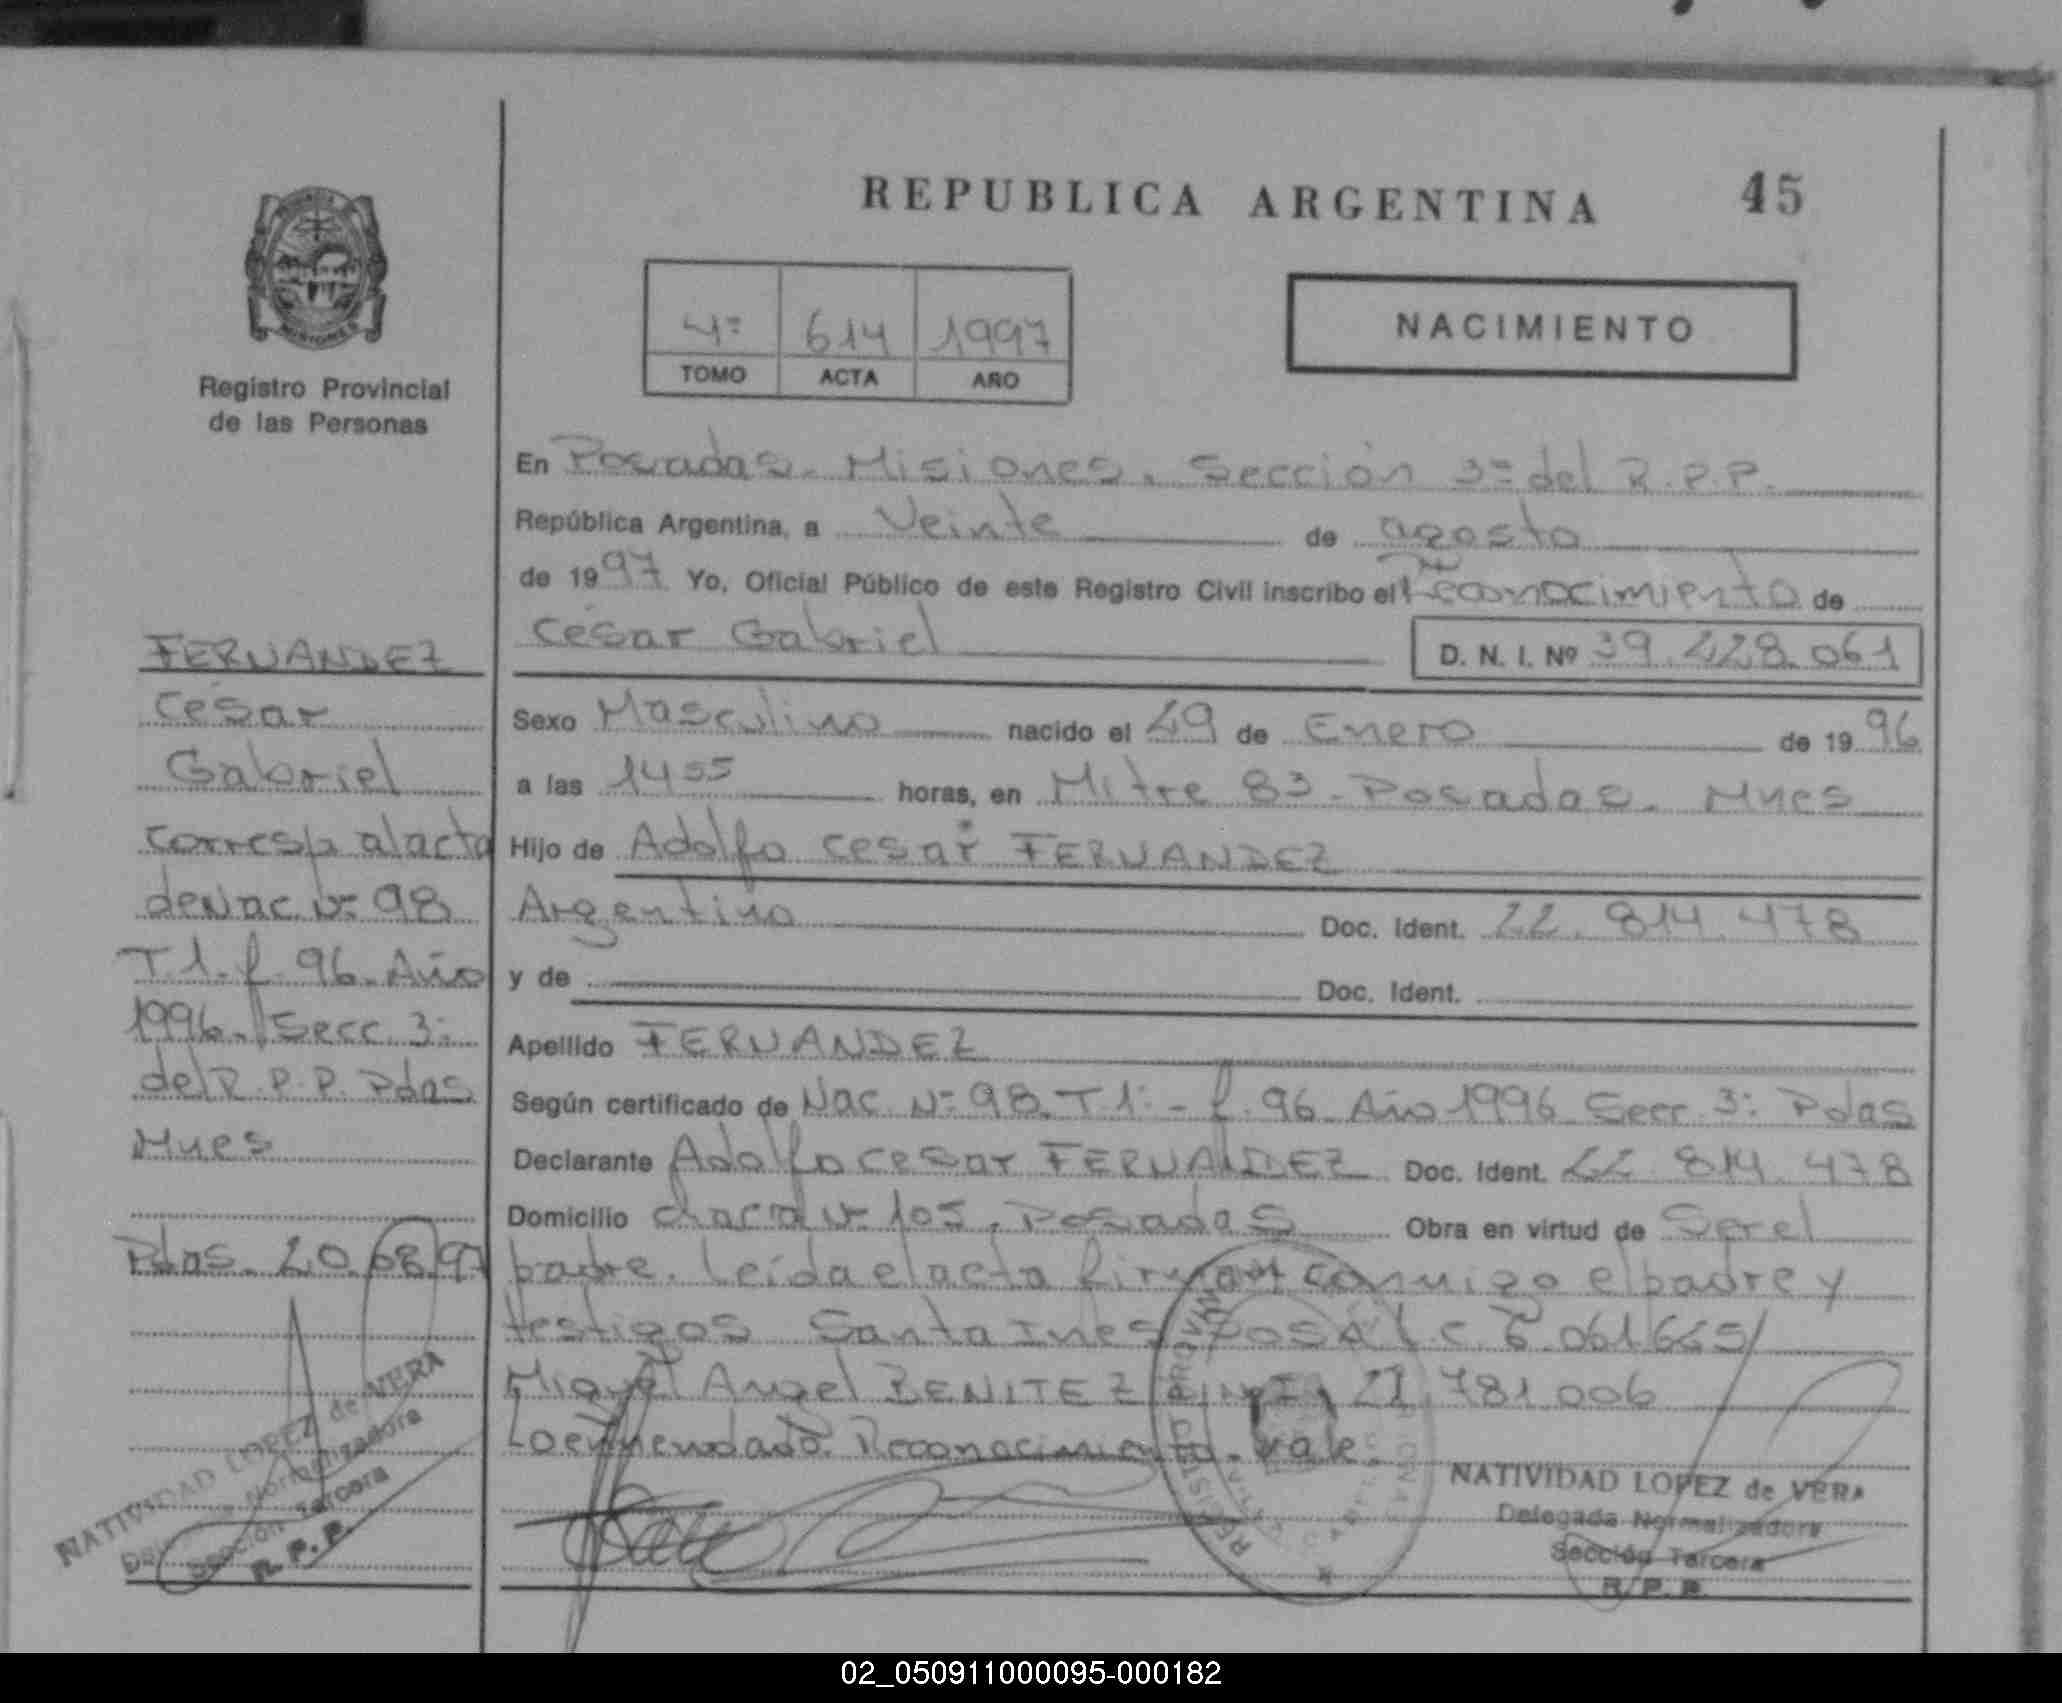 REPUBLICA ARGENTINA 45
4º 614 1997
TOMO ACTA AÑO
NACIMIENTO
MISIONES
Registro Provincial
de las Personas
En Posadas. Misiones. Sección 3º del R.P.P.
República Argentina, a Veinte de agosto
de 1997 Yo, Oficial Público de este Registro Civil inscribo el Reconocimiento de
César Gabriel D. N. I. Nº 39.228.061
Sexo Masculino nacido el 29 de Enero de 1996
a las 1455 horas, en Mitre 83. Posadas. Mnes
Hijo de Adolfo cesar FERNANDEZ
Argentino Doc. Ident. 22.814.478
y de Doc. Ident.
Apellido FERNANDEZ
Según certificado de Nac. Nº 98. T.1º - f. 96. Año 1996 Secc. 3º Pdas
Declarante Adolfo cesar FERNANDEZ Doc. Ident. 22 814.478
Domicilio chacra Nº 105. Posadas Obra en virtud de Ser el
padre. Leída el acta firman conmigo el padre y
testigos Santa Ines L.C. 6.061665/
Miguel Angel BENITEZ D.N.I. 21.781.006
Lo enmendado. Reconocimiento. vale.
FERNANDEZ
César
Gabriel
corresp al acta
de Nac. Nº 98
T.1. f. 96. Año
1996. Secc. 3º
del R.P.P. Pdas
Mnes
Pdas. 20.08.97
NATIVIDAD LOPEZ de VERA
Normalizadora
Sección Tercera
R. P. P.
REGISTRO PROVINCIAL
NATIVIDAD LOPEZ de VERA
Delegada Normalizadora
Sección Tercera
R. P. P.
02_050911000095-000182